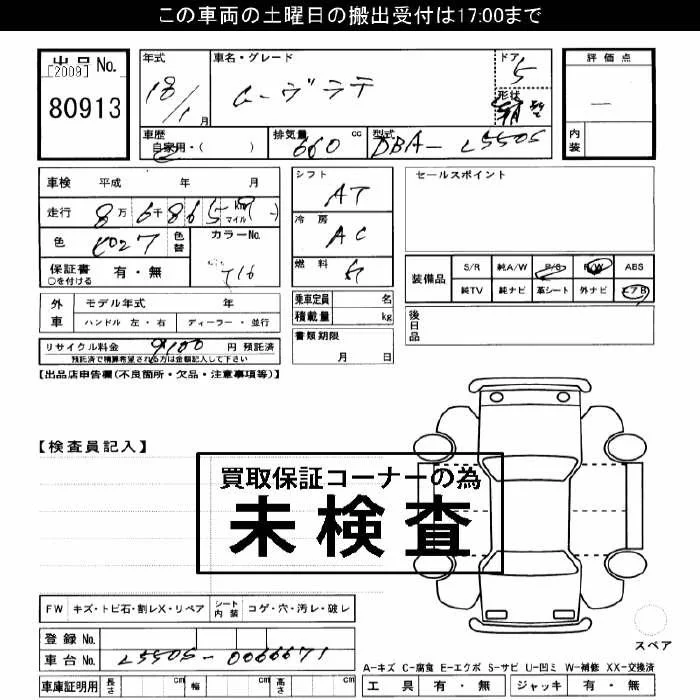 この車両の土曜日の搬出受付は17:00まで
出品 No.
[2009]
80913
年式
18/1月
車名・グレード
ムーヴラテ
ドア
5
形状
評価点
—
内装
車歴
自家用・( )
排気量
660 cc
型式
DBA-L550S
車検 平成 年 月
走行 8万6千865 km マイル
色
色替
カラーNo.
T16
保証書 有・無
○を付ける
シフト
AT
冷房
AC
燃料
ガ
セールスポイント
装備品
S/R 純A/W P/S P/W ABS
純TV 純ナビ 革シート 外ナビ エアB
外車
モデル年式 年
ハンドル 左・右 ディーラー・並行
乗車定員 名
積載量 kg
後日品
リサイクル料金 9100 円 預託済
預託済で精算希望される方は金額記入して下さい
書類期限
月 日
【出品店申告欄(不良箇所・欠品・注意事項等)】
【検査員記入】
買取保証コーナーの為
未検査
FW キズ・トビ石・割レX・リペア シート内装 コゲ・穴・汚レ・破レ
スペア
登録 No.
車台 No. L550S-0066671
A-キズ C-腐食 E-エクボ S-サビ U-凹ミ W-補修 XX-交換済
車庫証明用 長さ cm 幅 cm 高さ cm
工具 有・無 ジャッキ 有・無